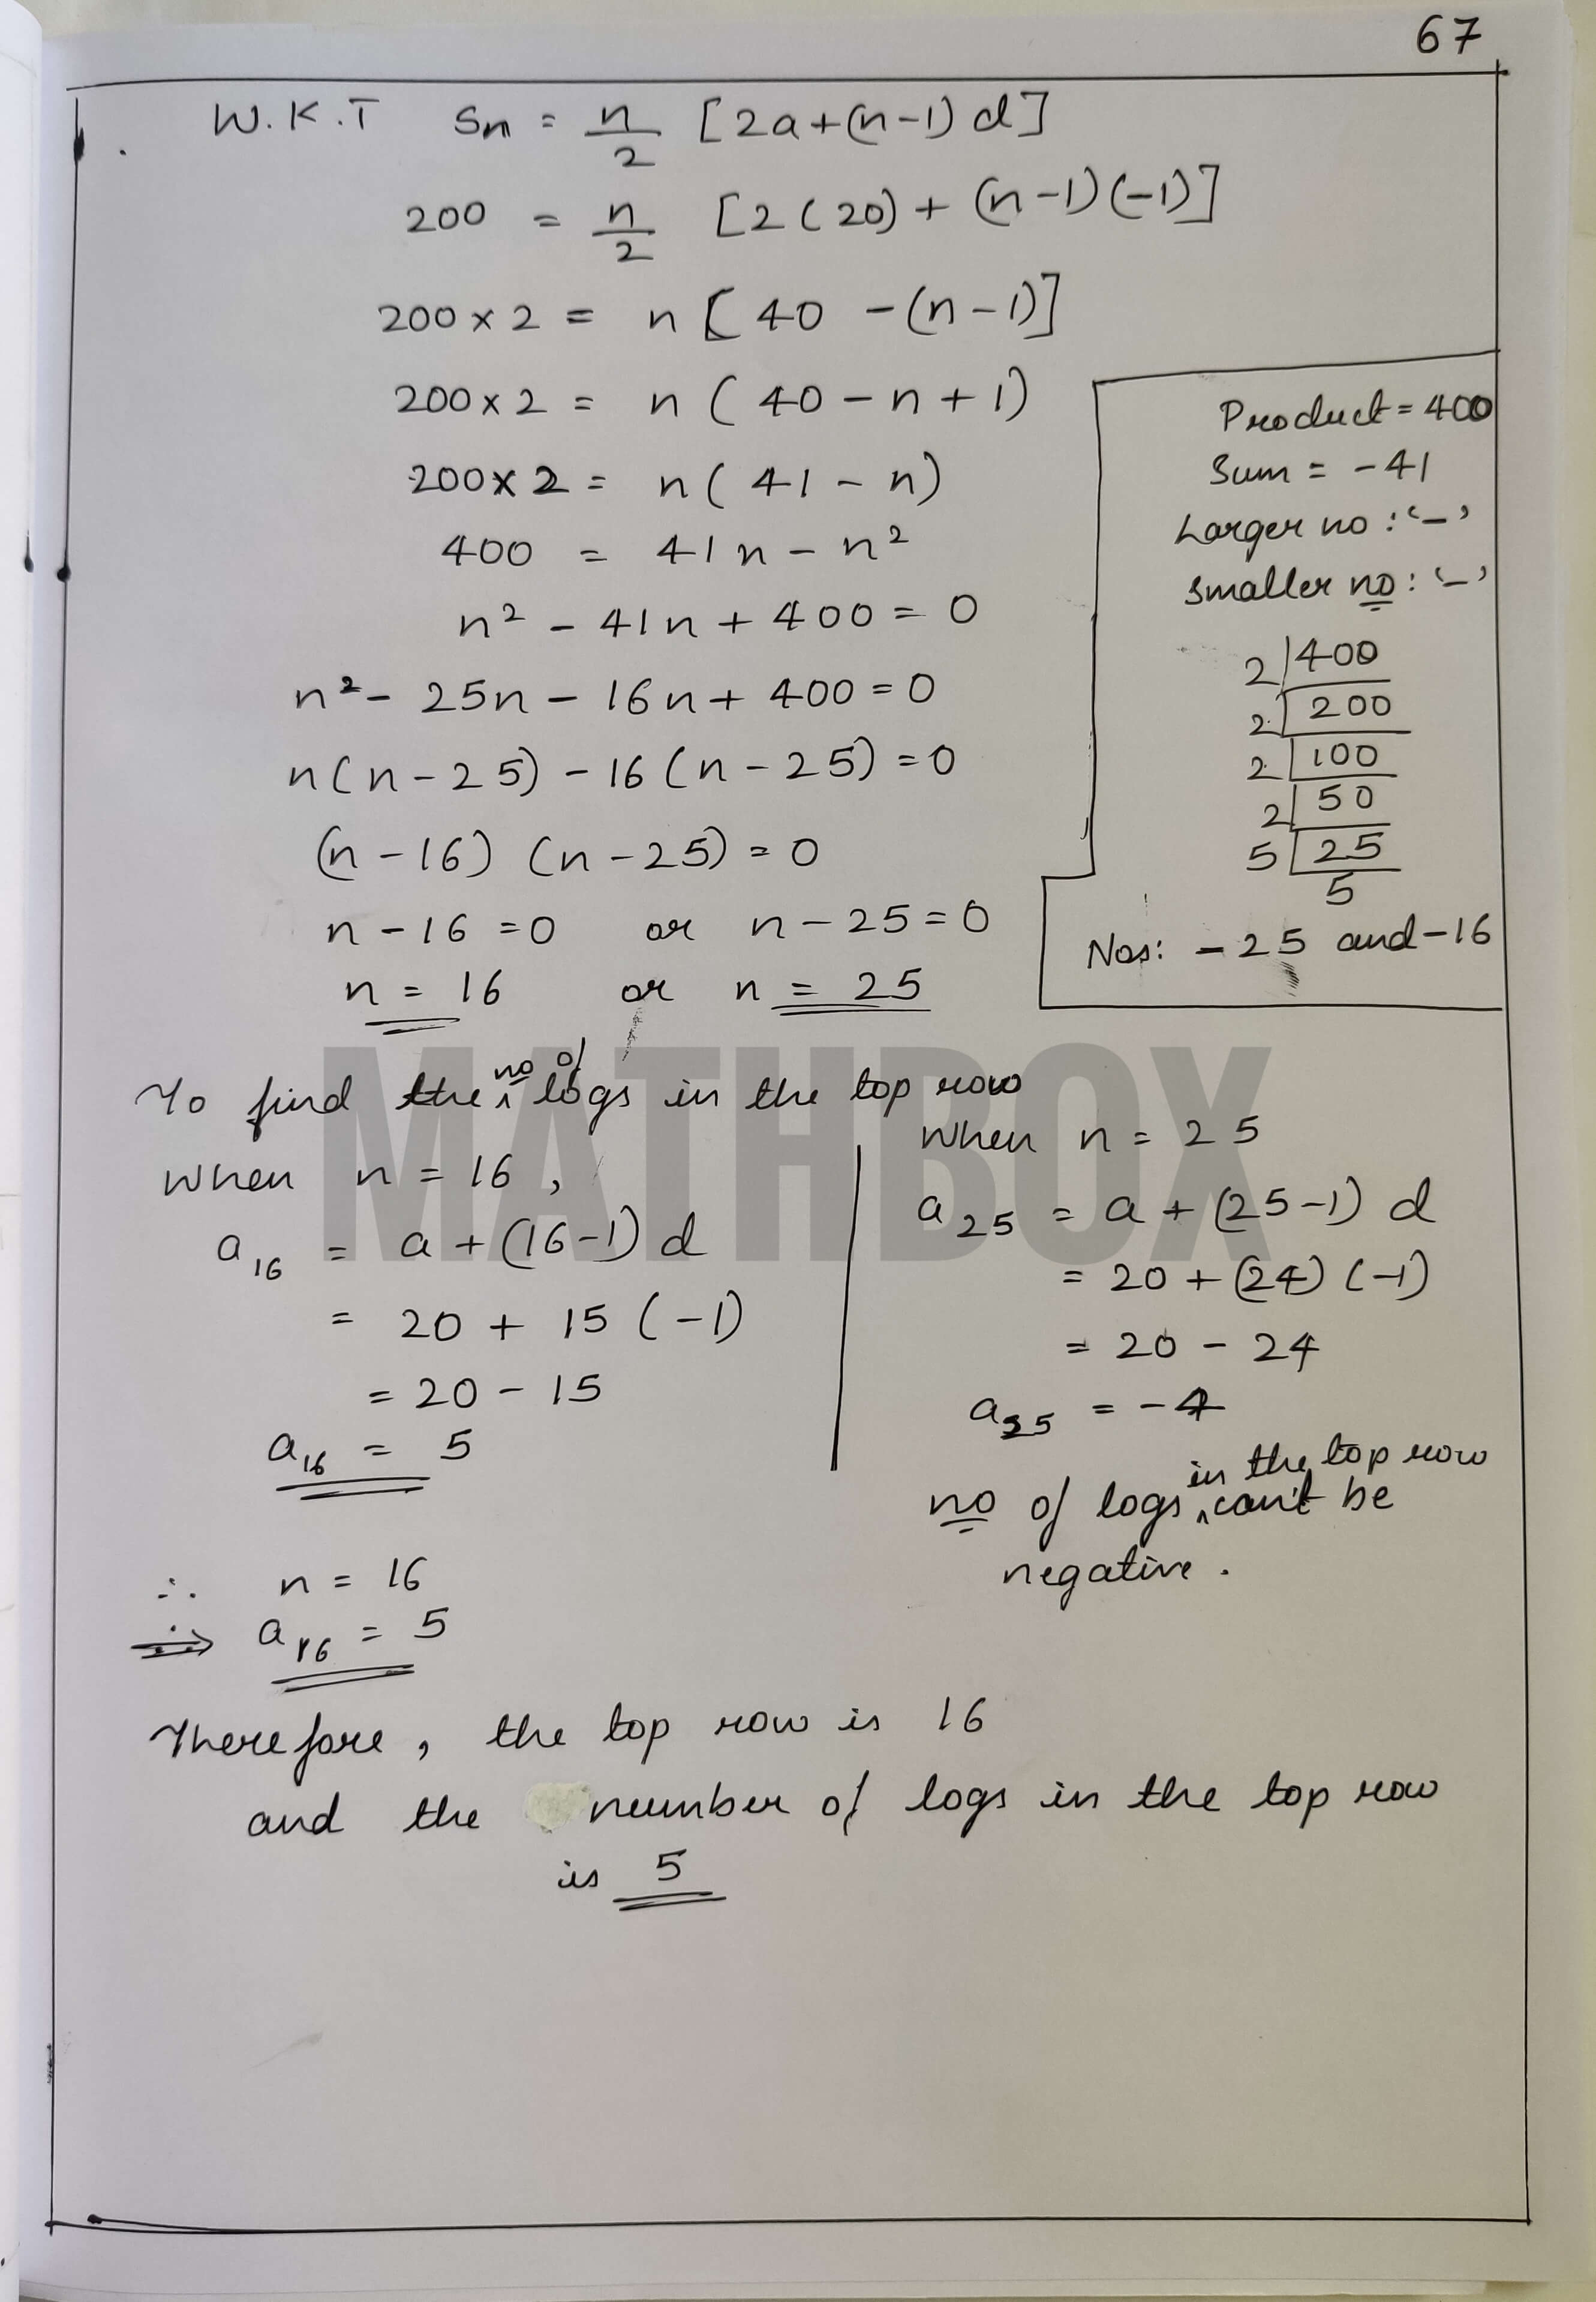 67
W.K.T Sn = n/2 [2a+(n-1)d]
200 = n/2 [2(20)+(n-1)(-1)]
200 x 2 = n[40 -(n-1)]
200 x 2 = n(40-n+1)
200 x 2 = n(41-n)
400 = 41n - n²
n² - 41n + 400 = 0
n² - 25n - 16n + 400 = 0
n(n-25) - 16(n-25) = 0
(n-16) (n-25) = 0
n-16 = 0 or n-25 = 0
n = 16 or n = 25
Product = 400
Sum = -41
Larger no : '-'
Smaller no : '-'
2 | 400
2 | 200
2 | 100
2 | 50
5 | 25
5
Nos: -25 and -16
To find the no of logs in the top row
When n = 16,
a16 = a + (16-1) d
= 20 + 15 (-1)
= 20 - 15
a16 = 5
When n = 25
a25 = a + (25-1) d
= 20 + (24) (-1)
= 20 - 24
a25 = -4
no of logs in the top row can't be
negative.
∴ n = 16
⇒ a16 = 5
Therefore, the top row is 16
and the number of logs in the top row
is 5
MATHBOX